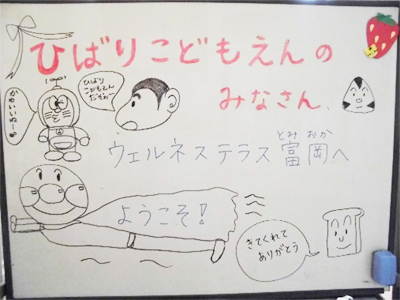 ひばりこどもえんの
みなさん、
かわいいねー
ひばり
こどもえん
だぞぉ〜
ウェルネステラス富岡へ
とみ おか
ようこそ！
きてくれて
ありがとう